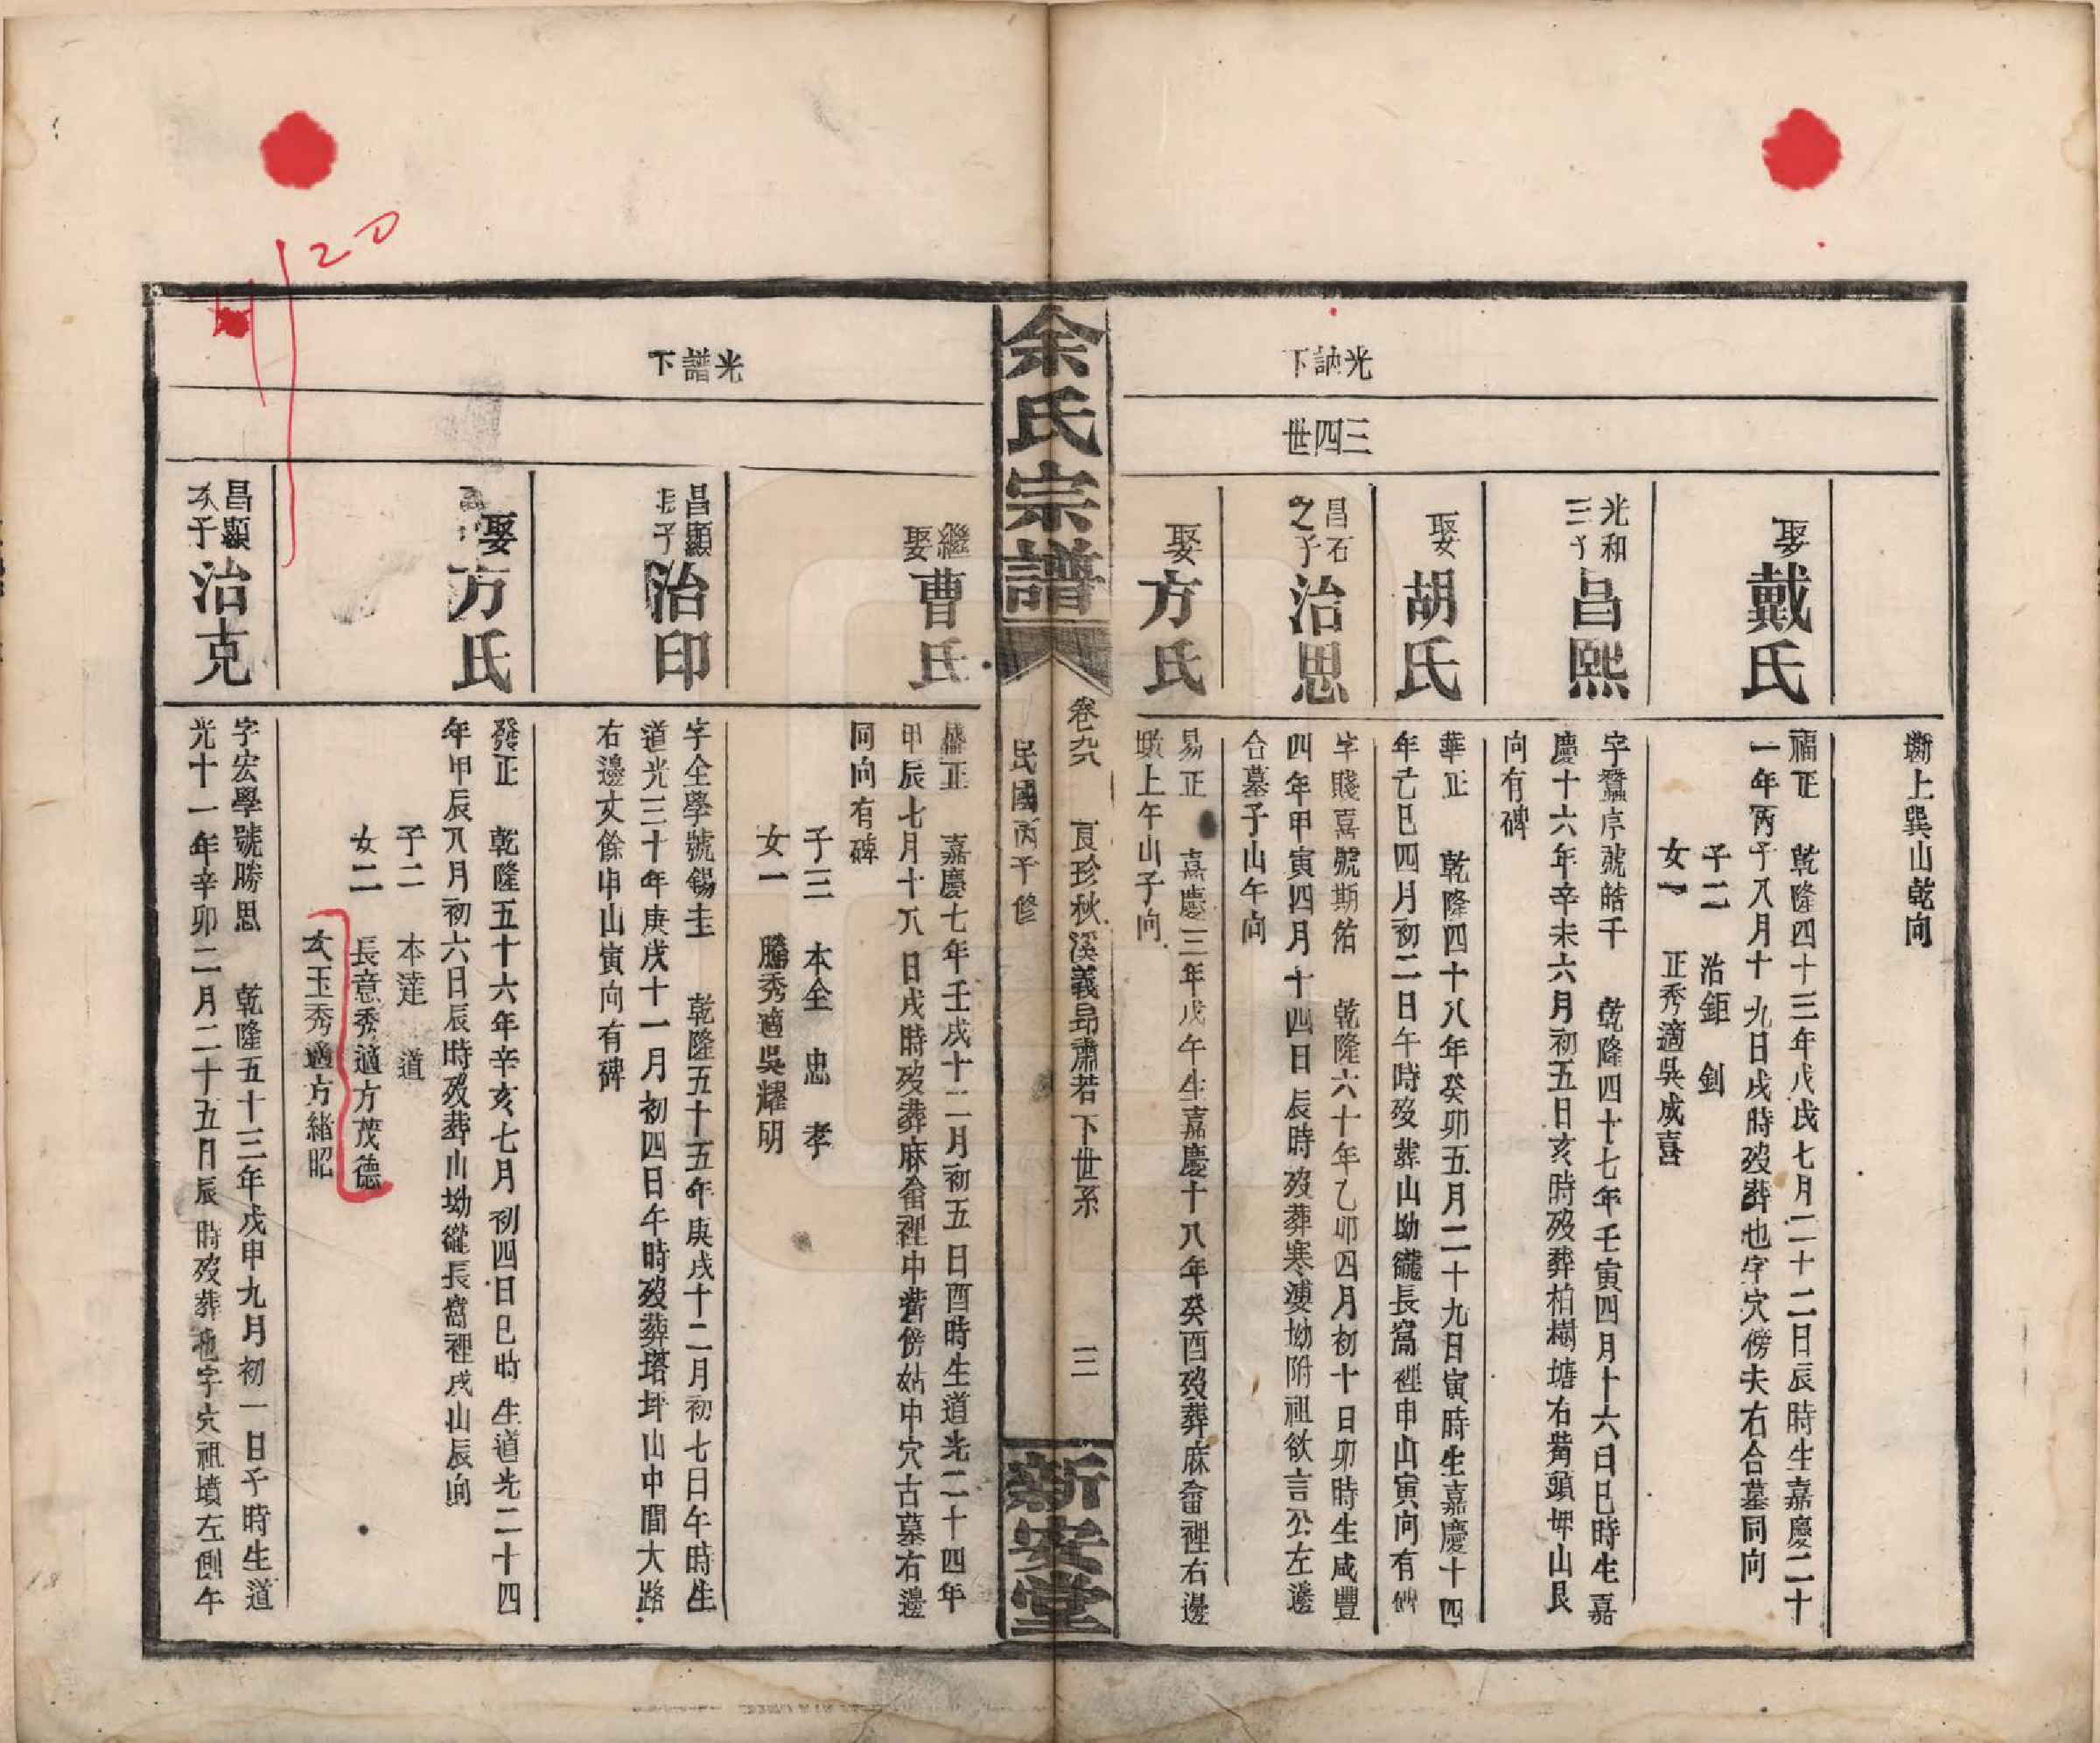 光訥下
三四世
塹上巽山乾向
娶戴氏
福正 乾隆四十三年戊戌七月二十二日辰時生嘉慶二十
一年丙子八月十九日戌時歿葬也字穴傍夫右合墓同向
子二 治鉅 釗
女一 正秀適吳成喜
光和三子 昌熙
字蠶序號皓千 乾隆四十七年壬寅四月十六日巳時生嘉
慶十六年辛未六月初五日亥時歿葬柏樹塘右嘴頭坤山艮
向有碑
娶胡氏
華正 乾隆四十八年癸卯五月二十九日寅時生嘉慶十四
年己巳四月初二日午時歿葬山坳 長窩裡申山寅向有碑
昌石之子 治思
字賤喜號斯佑 乾隆六十年乙卯四月初十日卯時生咸豐
四年甲寅四月十四日辰時歿葬寒婆坳附祖欲言公左邊
合墓子山午向
娶方氏
易正 嘉慶三年戊午生嘉慶十八年癸酉歿葬麻畬裡右邊
墩上午山子向
余氏宗譜
卷九六 良珍秋溪義昂肅若下世系 三
民國丙子修
新安堂
光譜下
繼娶曹氏
盛正 嘉慶七年壬戌十二月初五日酉時生道光二十四年
甲辰七月十八日戌時歿葬麻畬裡中嘴傍姑中穴古墓右邊
同向有碑
子三 本全 忠 孝
女一 勝秀適吳耀明
昌顯長子 治印
字全學號錫圭 乾隆五十五年庚戌十二月初七日午時生
道光三十年庚戌十一月初四日午時歿葬塔坪山中間大路
右邊丈餘申山寅向有碑
娶方氏
發正 乾隆五十六年辛亥七月初四日巳時生道光二十四
年甲辰八月初六日辰時歿葬山坳 長窩裡戌山辰向
子二 本達 道
女二 長意秀適方茂德
次玉秀適方緒昭
昌顯次子 治克
字宏學號勝思 乾隆五十三年戊申九月初一日子時生道
光十一年辛卯二月二十五日辰時歿葬也字穴祖墳左側午
120